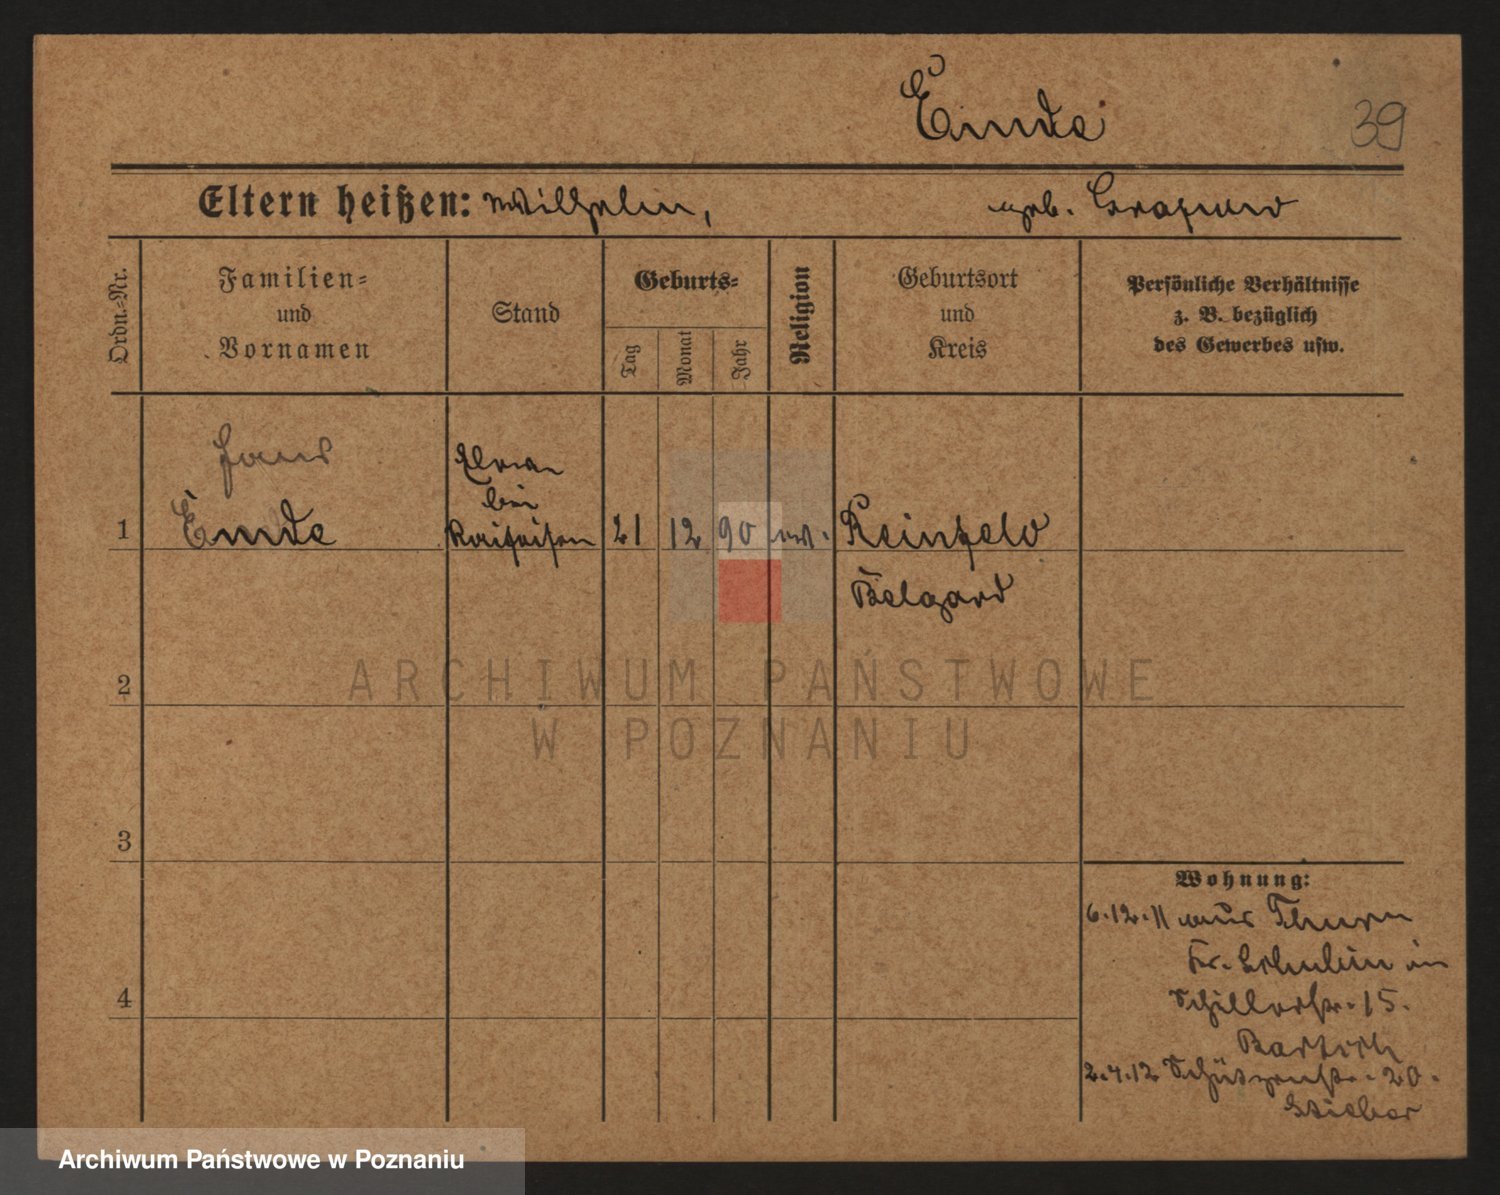 Emde
39
Eltern heißen: Wilhelm, geb.
Ordn.-Nr.
Familien-
und
Vornamen
Stand
Geburts-
Tag
Monat
Jahr
Religion
Geburtsort
und
Kreis
Persönliche Verhältnisse
z. B. bezüglich
des Gewerbes usw.
Hans
bei
1 Emde 21 12 90 ev. Reinfeld
Belgard
ARCHIWUM PAŃSTWOWE
2
W POZNANIU
3
Wohnung:
6.12.11 aus Thorn
Kr. Schubin in
4
Schillerstr. 15.
2.4.12 Schützenstr. 20.
Archiwum Państwowe w Poznaniu